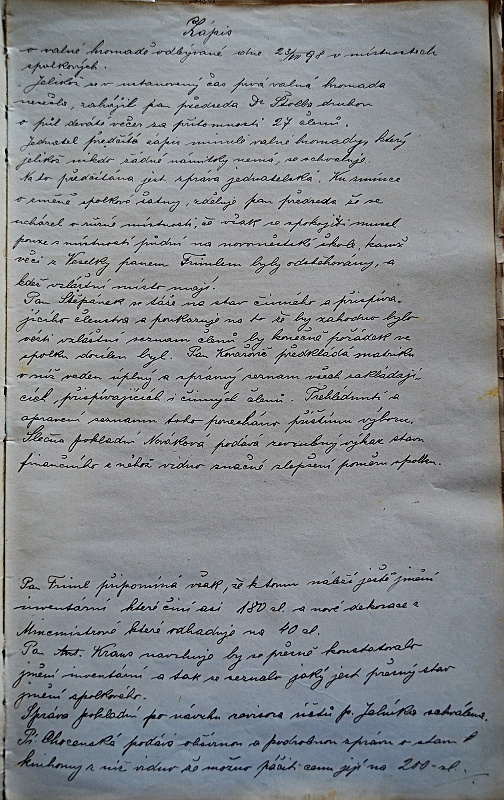 Zápis
o valné hromadě odbývané dne 23/VII 98 v místnostech
spolkových.
Jelikož se v ustanovený čas prvá valná hromada
nesešla, zahájil pan předseda Dr. Štolba druhou
o půl deváté večer za přítomnosti 27 členů.
Jednatel předčítá zápis minulé valné hromady, který
jelikož nikdo žádné námitky nemá, se schvaluje.
Na to předčítána jest zpráva jednatelská. Ku zmínce
o změně spolkov. šatny, zděluje pan předseda že se
ucházel o různé místnosti, že však se spokojiti musel
pouze s místností půdní na novoměstské škole, kamž
věci z Veselky panem Frimlem byly odstěhovány, a
kdež zvláštní místo mají.
Pan Štěpánek se táže na stav činného a přispíva-
jícího členstva a poukazuje na to že by záhodno bylo
vésti zvláštní seznam členů by konečně pořádek ve
spolku docílen byl. Pan Kovařovic předkládá matriku
v níž veden úplný a správný seznam všech zakládají-
cích, přispívajících i činných členů. Přehlédnutí a
upravení seznamu toho ponecháno příštímu výboru.
Slečna pokladní Nováková podává zevrubný výkaz stavu
finančního z něhož vidno značné zlepšení poměrů spolku.
Pan Friml připomíná však, že k tomu náleží ještě jmění
inventární které činí asi 180 zl. a nové dekorace z
Mincmistrové které odhaduje na 40 zl.
Pan Ant. Kraus navrhuje by se přesně konstatovalo
jmění inventární a tak se seznalo jaký jest přesný stav
jmění spolkového.
Zpráva pokladní po návrhu revisora účtů p. Jelínka schválena.
Pí Chocenská podává obšírnou a podrobnou zprávu o stavu
knihovny z níž vidno že možno páčiti cenu její na 200 zl.